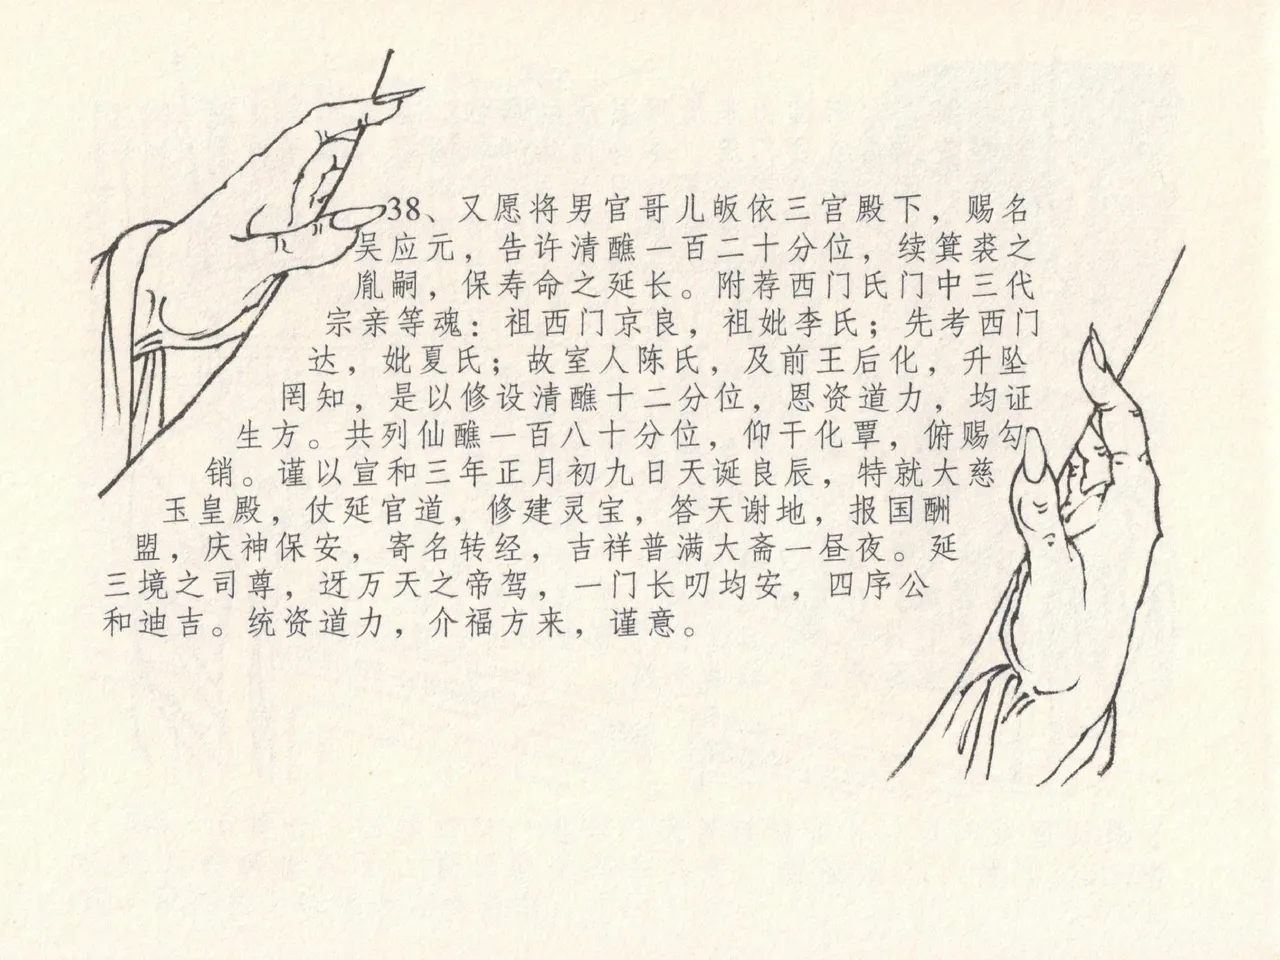 38、又愿将男官哥儿皈依三宫殿下，赐名
吴应元，告许清醮一百二十分位，续箕裘之
胤嗣，保寿命之延长。附荐西门氏门中三代
宗亲等魂：祖西门京良，祖妣李氏；先考西门
达，妣夏氏；故室人陈氏，及前王后化，升坠
罔知，是以修设清醮十二分位，恩资道力，均证
生方。共列仙醮一百八十分位，仰干化覃，俯赐勾
销。谨以宣和三年正月初九日天诞良辰，特就大慈
玉皇殿，仗延官道，修建灵宝，答天谢地，报国酬
盟，庆神保安，寄名转经，吉祥普满大斋一昼夜。延
三境之司尊，迓万天之帝驾，一门长叨均安，四序公
和迪吉。统资道力，介福方来，谨意。